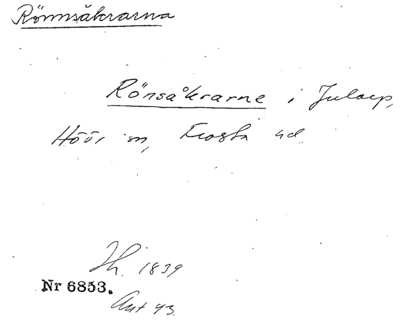 Rönnsåkrarna
Rönsåkrarne i Jularp,
Höör sn, Frosta hd
Jh. 1839
Nr 6853.
Akt 43